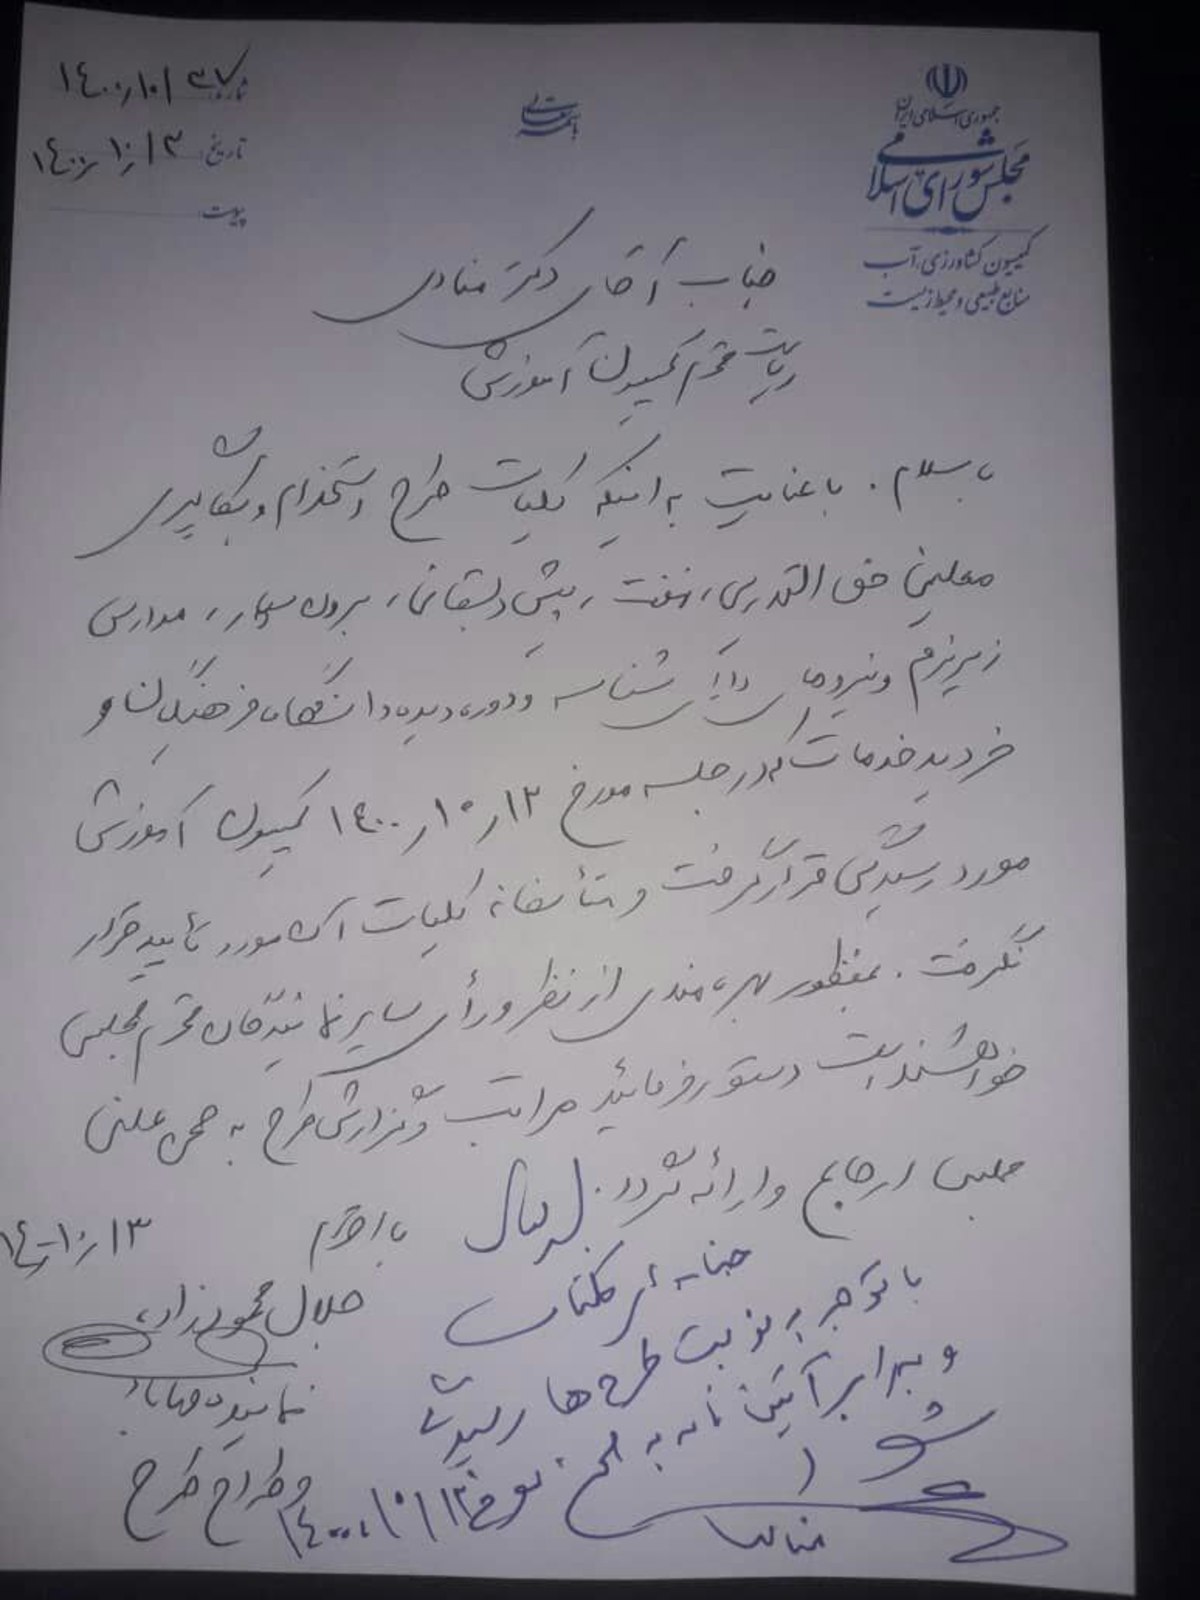 جمهوری اسلامی ایران
مجلس شورای اسلامی
کمیسیون کشاورزی، آب
منابع طبیعی و محیط زیست
باسمه تعالی
شماره:
تاریخ: ۱۴۰۰٫۱۰٫۱۳
پیوست:
جناب آقای دکتر منادی
ریاست محترم کمیسیون آموزش
با سلام. با عنایت به اینکه کلیات طرح استخدام و بکارگیری
معلمین حق التدریس، نهضت، پیش دبستانی، برون سپار، مدارس
زیر نرم و نیروهای دارای شناسه و دوره دیده دانشگاه فرهنگیان و
خرید خدمات که در جلسه مورخ ۱۴۰۰٫۱۰٫۱۳ کمیسیون آموزش
مورد رسیدگی قرار گرفت و متأسفانه کلیات آن مورد تأیید قرار
نگرفت. بمنظور بهره مندی از نظر و رأی سایر نمایندگان محترم مجلس
خواهشمند است دستور فرمائید مراتب و گزارش طرح به صحن علنی
مجلس ارجاع و ارائه گردد.
با احترام
۱۴۰۰٫۱۰٫۱۳
جلال محمودزاده
نماینده مهاباد
و طراح طرح
با توجه به نوبت طرح ها رسیدگی
و برابر آئین نامه به
شود
۱۴۰۰٫۱۰٫۱۳
منادی